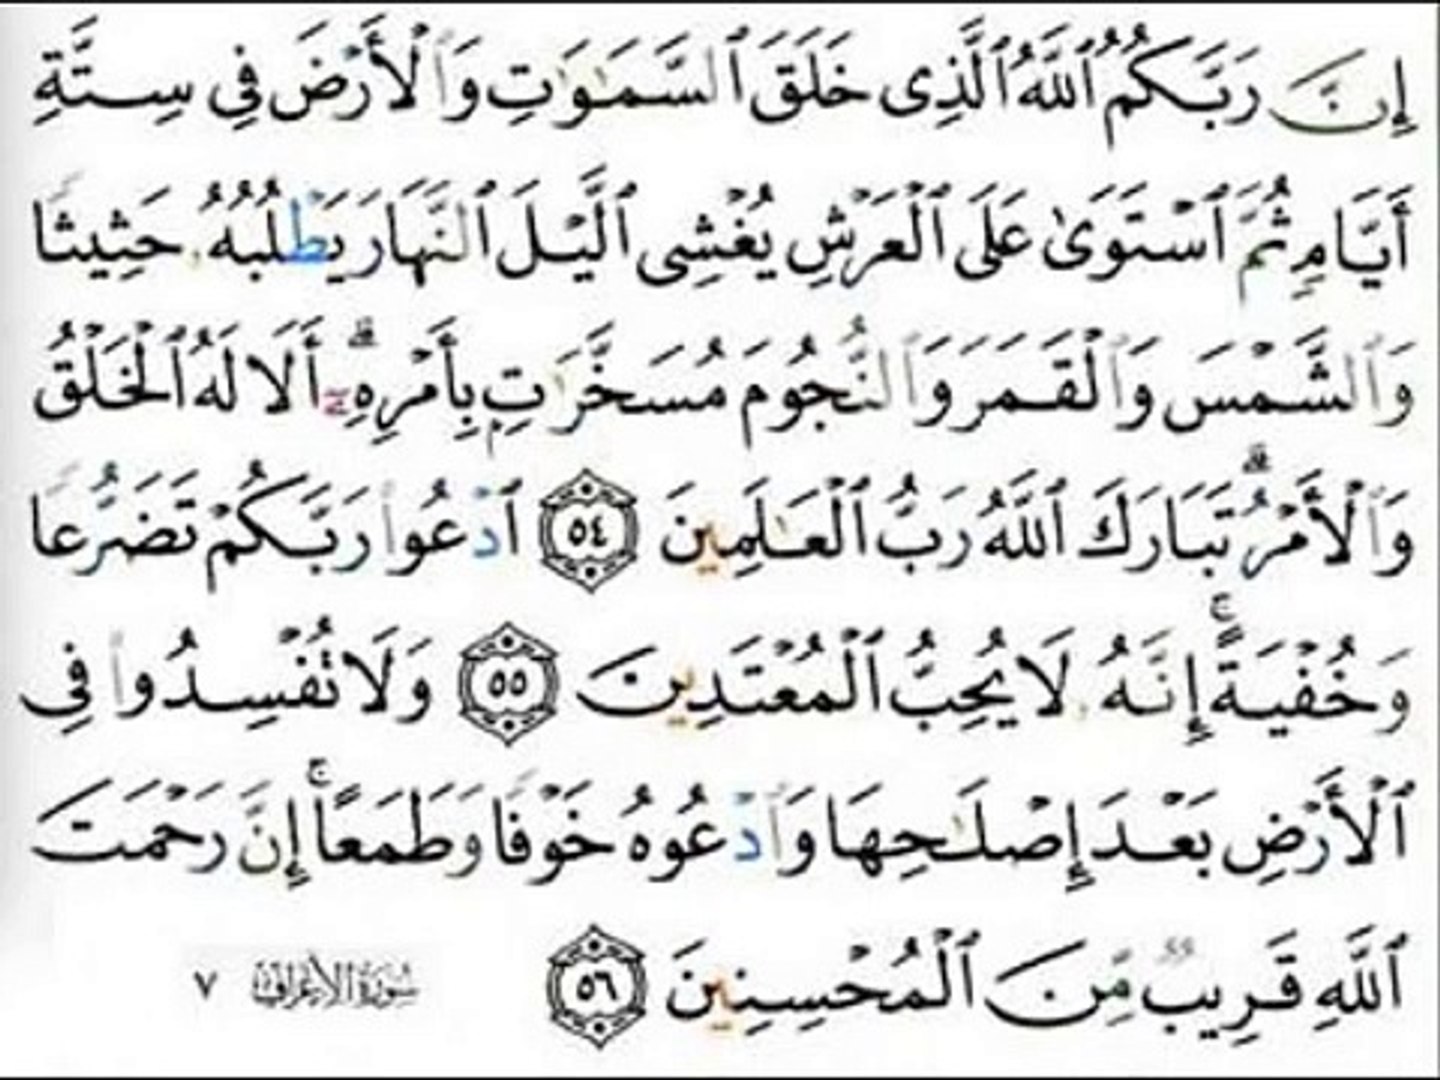 إِنَّ رَبَّكُمُ ٱللَّهُ ٱلَّذِى خَلَقَ ٱلسَّمَـٰوَٰتِ وَٱلْأَرْضَ فِى سِتَّةِ
أَيَّامٍ ثُمَّ ٱسْتَوَىٰ عَلَى ٱلْعَرْشِ يُغْشِى ٱلَّيْلَ ٱلنَّهَارَ يَطْلُبُهُۥ حَثِيثًا
وَٱلشَّمْسَ وَٱلْقَمَرَ وَٱلنُّجُومَ مُسَخَّرَٰتٍۭ بِأَمْرِهِۦٓ ۗ أَلَا لَهُ ٱلْخَلْقُ
وَٱلْأَمْرُ ۗ تَبَارَكَ ٱللَّهُ رَبُّ ٱلْعَـٰلَمِينَ ٥٤ ٱدْعُوا۟ رَبَّكُمْ تَضَرُّعًا
وَخُفْيَةً ۚ إِنَّهُۥ لَا يُحِبُّ ٱلْمُعْتَدِينَ ٥٥ وَلَا تُفْسِدُوا۟ فِى
ٱلْأَرْضِ بَعْدَ إِصْلَـٰحِهَا وَٱدْعُوهُ خَوْفًا وَطَمَعًا ۚ إِنَّ رَحْمَتَ
ٱللَّهِ قَرِيبٌ مِّنَ ٱلْمُحْسِنِينَ ٥٦ سُورَةُ الأَعْرَافِ ٧